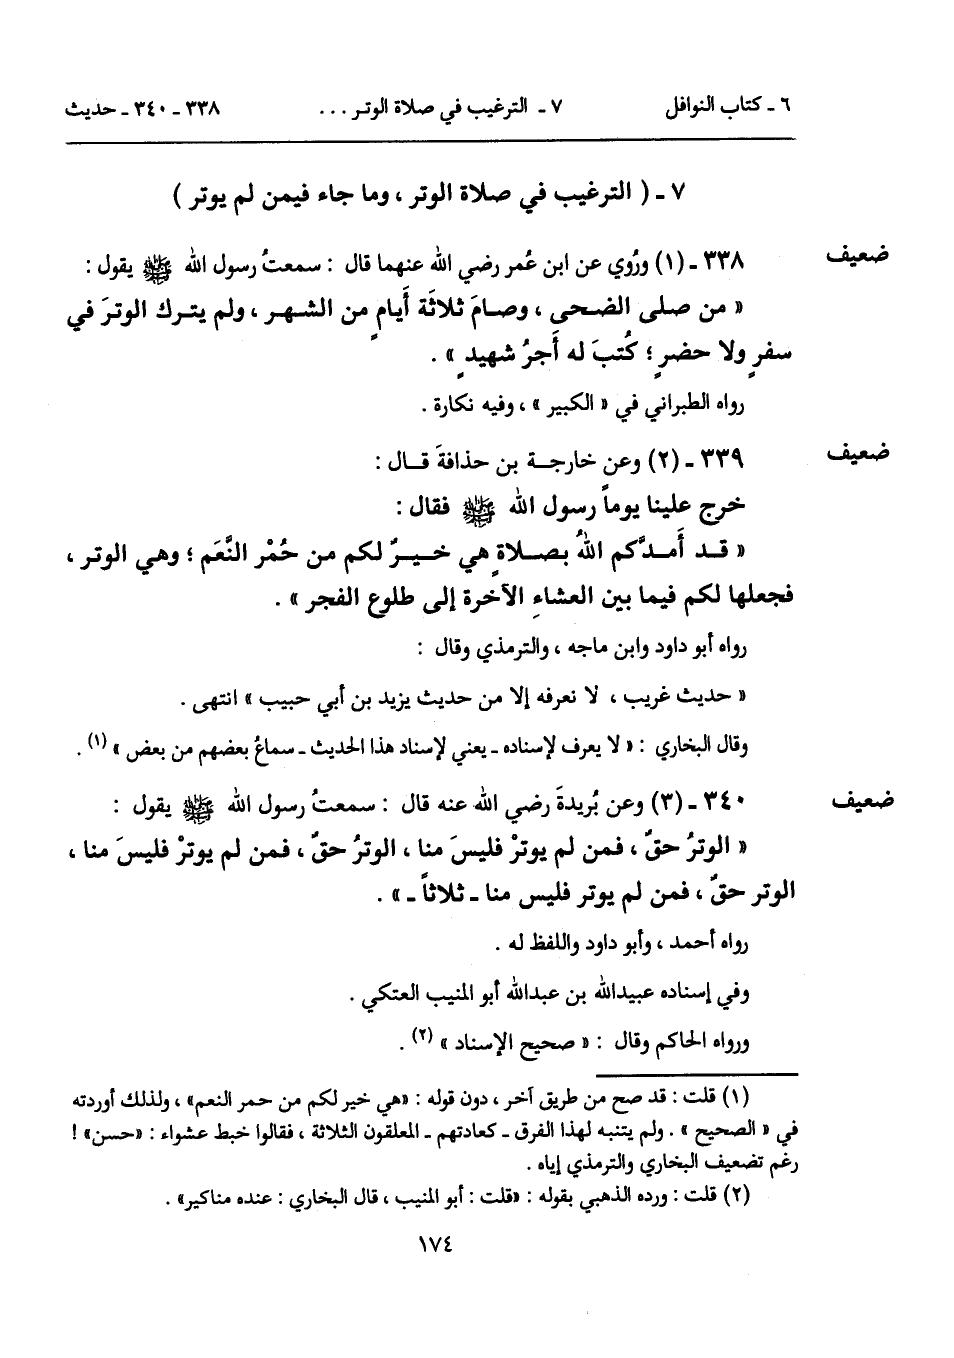 ٦ ـ كتاب النوافل ٧ ـ الترغيب في صلاة الوتر ... ٣٣٨ ـ ٣٤٠ ـ حديث
٧ ـ ( الترغيب في صلاة الوتر ، وما جاء فيمن لم يوتر )
ضعيف ٣٣٨ ـ (١) ورُوي عن ابن عُمر رضي الله عنهما قال : سمعتُ رسول الله ﷺ يقول :
« من صلى الضحى ، وصامَ ثلاثَة أيامٍ من الشهر ، ولم يترك الوترَ في
سفرٍ ولا حضرٍ ؛ كُتبَ له أجرُ شهيدٍ » .
رواه الطبراني في « الكبير » ، وفيه نكارة .
ضعيف ٣٣٩ ـ (٢) وعن خارجة بن حذافةَ قال :
خرج علينا يوماً رسول الله ﷺ فقال :
« قد أَمدَّكم اللهُ بصلاةٍ هي خيرٌ لكم من حُمْر النَّعَم ؛ وهي الوتر ،
فجعلها لكم فيما بين العشاءِ الآخرة إلى طلوع الفجر » .
رواه أبو داود وابن ماجه ، والترمذي وقال :
« حديث غريب ، لا نعرفه إلا من حديث يزيد بن أبي حبيب » انتهى .
وقال البخاري : « لا يعرف لإسناده ـ يعني لإسناد هذا الحديث ـ سماعُ بعضهم من بعض » (١) .
ضعيف ٣٤٠ ـ (٣) وعن بُريدةَ رضي الله عنه قال : سمعتُ رسول الله ﷺ يقول :
« الوترُ حقٌ ، فمن لم يوترْ فليسَ منا ، الوترُ حقٌ ، فمن لم يوترْ فليسَ منا ،
الوتر حقٌ ، فمن لم يوتر فليس منا ـ ثلاثاً ـ » .
رواه أحمد ، وأبو داود واللفظ له .
وفي إسناده عبيدالله بن عبدالله أبو المنيب العتكي .
ورواه الحاكم وقال : « صحيح الإسناد » (٢) .
(١) قلت : قد صح من طريق آخر ، دون قوله : «هي خير لكم من حمر النعم» ، ولذلك أوردته
في « الصحيح » . ولم يتنبه لهذا الفرق ـ كعادتهم ـ المعلقون الثلاثة ، فقالوا خبط عشواء : «حسن» !
رغم تضعيف البخاري والترمذي إياه .
(٢) قلت : ورده الذهبي بقوله : «قلت : أبو المنيب ، قال البخاري : عنده مناكير» .
١٧٤